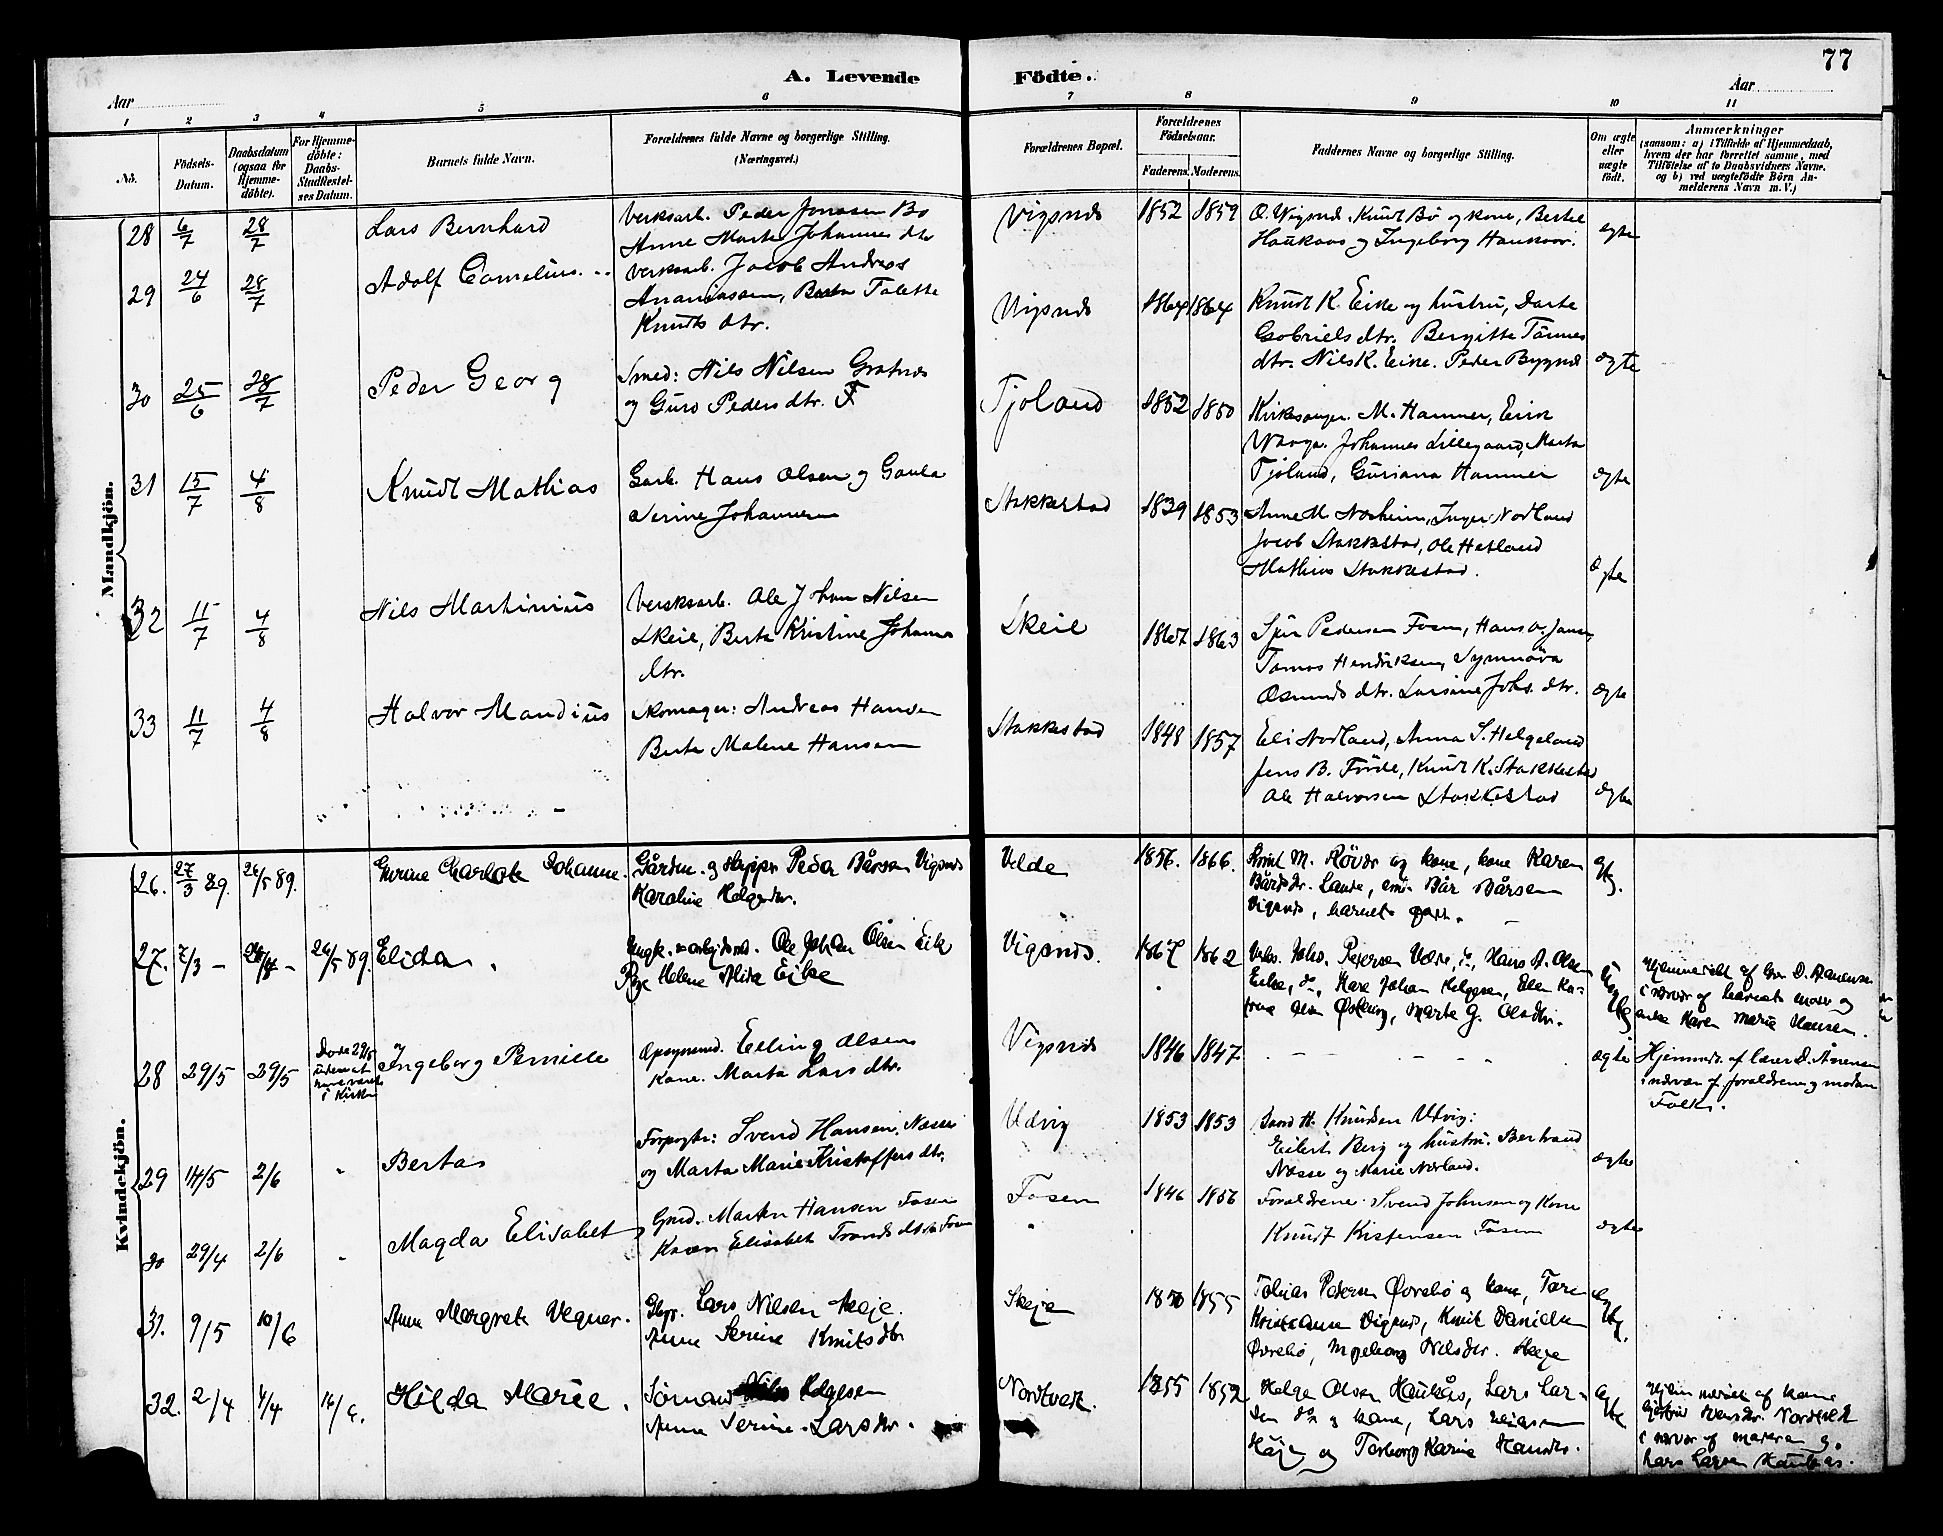 77
A. Levende Födte.
Aar
Aar
1 2 3 4 5 6 7 8 9 10 11
No.
Födsels-
Datum.
Daabsdatum
(ogsaa for
Hjemme-
döbte).
For Hjemme-
döbte:
Daabs-
Stadfæstel-
ses Datum.
Barnets fulde Navn.
Forældrenes fulde Navne og borgerlige Stilling.
(Næringsvei.)
Forældrenes Bopæl.
Forældrenes
Födselsaar.
Faderens. Moderens.
Faddernes Navne og borgerlige Stilling.
Om ægte
eller
uægte
født.
Anmærkninger
(saasom: a) i Tilfælde af Hjemmedaab,
hvem der har forrettet samme, med
Tilföielse af to Daabsvidners Navne,
og b) ved uægtefödte Börn An-
melderens Navn m. V.)
Mandkjön.
28 6/7 28/7 Lars Bernhard
Verksarb. Peder Jonasen Bø
Anne Marta Johannes dtr
Vigsnds 1852 1859
O. Vigsnds. Knud Bø og kone, Bertel
Haukaas og Ingeborg Haukaas.
ægte
29 24/6 28/7 Adolf Cornelius
Verksarb. Jacob Andreas
Ananiassen, Berta Talette
Knuds dtr.
Vigsnds 1864 1864
Knud K. Eike og hustru, Dorte
Gabriels dtr. Bergitte Tønnes
dtr. Nils K. Eike. Peder Bygnds
ægte
30 25/6 28/7 Peder Georg
Smed: Nils Nilsen Gratnds
og Guro Peders dtr.
Tjoland 1852 1850
Kirkesanger. M. Hammer, Eirik
Waage. Johannes Lillegaard, Marta
Tjøland, Guriana Hammer
ægte
31 15/7 4/8 Knudt Mathias
Gaarb. Hans Olsen og
Serine Johannesen
Stakkestad 1839 1853
Anne M. Nærheim, Inger Nodland
Jacob Stakkestad, Ole Hetland
Mathias Stakkestad.
ægte
32 11/7 4/8 Nils Martinius
Versksarb. Ole Johan Nilsen
Skeie, Berta Kristine Johans
dtr.
Skeie 1867 1863
Sjur Pedersen Fosen, Hans O. Jansen,
Tomas Hendriksen, Synnøva
Osmunds dtr. Larsine Johs. dtr.
ægte
33 11/7 4/8 Halvor Mandius
Skomager: Andreas Hansen
Berta Malene Hansen
Stakkestad 1848 1857
Eli Nodland, Anna S. Helgeland
Jens B. Förde, Knud K. Stakkestad
Ole Halvorsen Stakkestad
ægte
Kvindekjön.
26. 27/3 89. 26/5 89. Gurine Charlote Johanne.
Gårdm. og Peder Bårsen Vigsnds
Karoline Helgesdtr.
Velde 1856. 1866.
Knut M. Røvær og kone, kone Karen
Bårdsdr. Lande, Bår Bårsen
Vigsnds, barnets
ægte.
27. 7/3 - 26/5 89. Elida.
Ungk. Ole Johan Olsen Eik
Pige Helene Alida Eike
Vigsnds. 1867 1862
Johs. Petersen Hans A. Olsen
Eike, do, Kare Johan Helgesen, Elen Ka-
trine Olsen Østberg, Marte G. Olsdtr.
Uægte
Hjemmedøbt af D. Aanensen
i nærvær af barnets moder og
enke Karen Marie Hansen.
28 29/5 29/5
Døde 29/5
uden at
have været
i Kirken
Ingeborg Pernille
Opsynsmd. Elling Olsen
Kone. Marta Lars dtr.
Vigsnds 1846 1847 - - - -
ægte
Hjemmed. af lærer D. Ånensen
i nærvær af forældrene og modens
Folk.
29 14/5 2/6 Berta
Forpagter: Svend Hansen, Næsse
og Marta Marie Kristoffers dtr.
Udvig 1853 1853
Knudsen Utvig:
Eilert Berg og hustru. Bertrand
Næsse og Marie Norland.
ægte
30 29/4 2/6 Magda Elisabet
Gmd. Morten Hansen Fosen
Karen Elisabet Tronds dtr Fosen
Fosen 1846 1856
Forældrene. Svend Johnsen og Kone
Knudt Kristensen Fosen
ægte
31. 9/5 10/6 Anna Margrete Vegner.
Lars Nilsen Skeje.
Anna Serine Knutsdtr
Skeje 1850 1855
Tobias Pedersen Øvrebø og kone, Tore
Kristiansen Vigsnds, Knut Danielsen
Øvrebø, Ingeborg Nilsdtr. Skeje
ægte.
32. 2/4 4/4 16/6. Hilda Marie.
Sømand Helgesen
Anna Serine Larsdtr.
Nordtveit. 1855 1852
Helge Olsen Haukås, Lars Lar-
sen do og kone, Lars Eliasen
Høje og Torborg Karine Hansdtr.
ægte
Hjemmedøbt af kone
Nordtveit
i nærvær af moderen og
Lars Larsen Haukås.